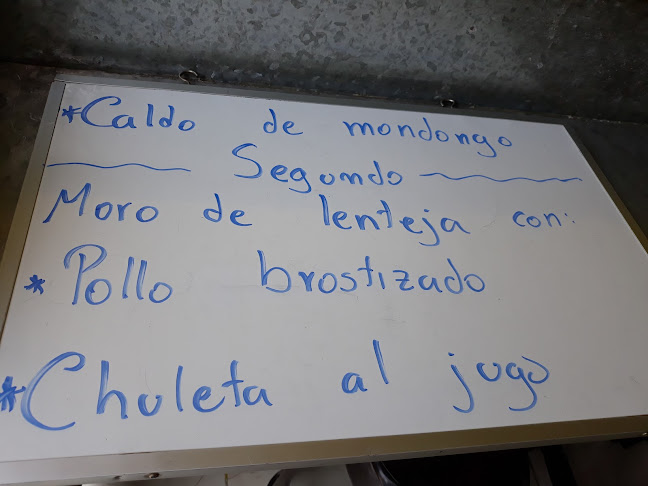 *Caldo de mondongo
Segundo
Moro de lenteja con:
* Pollo brostizado
*Chuleta al jugo